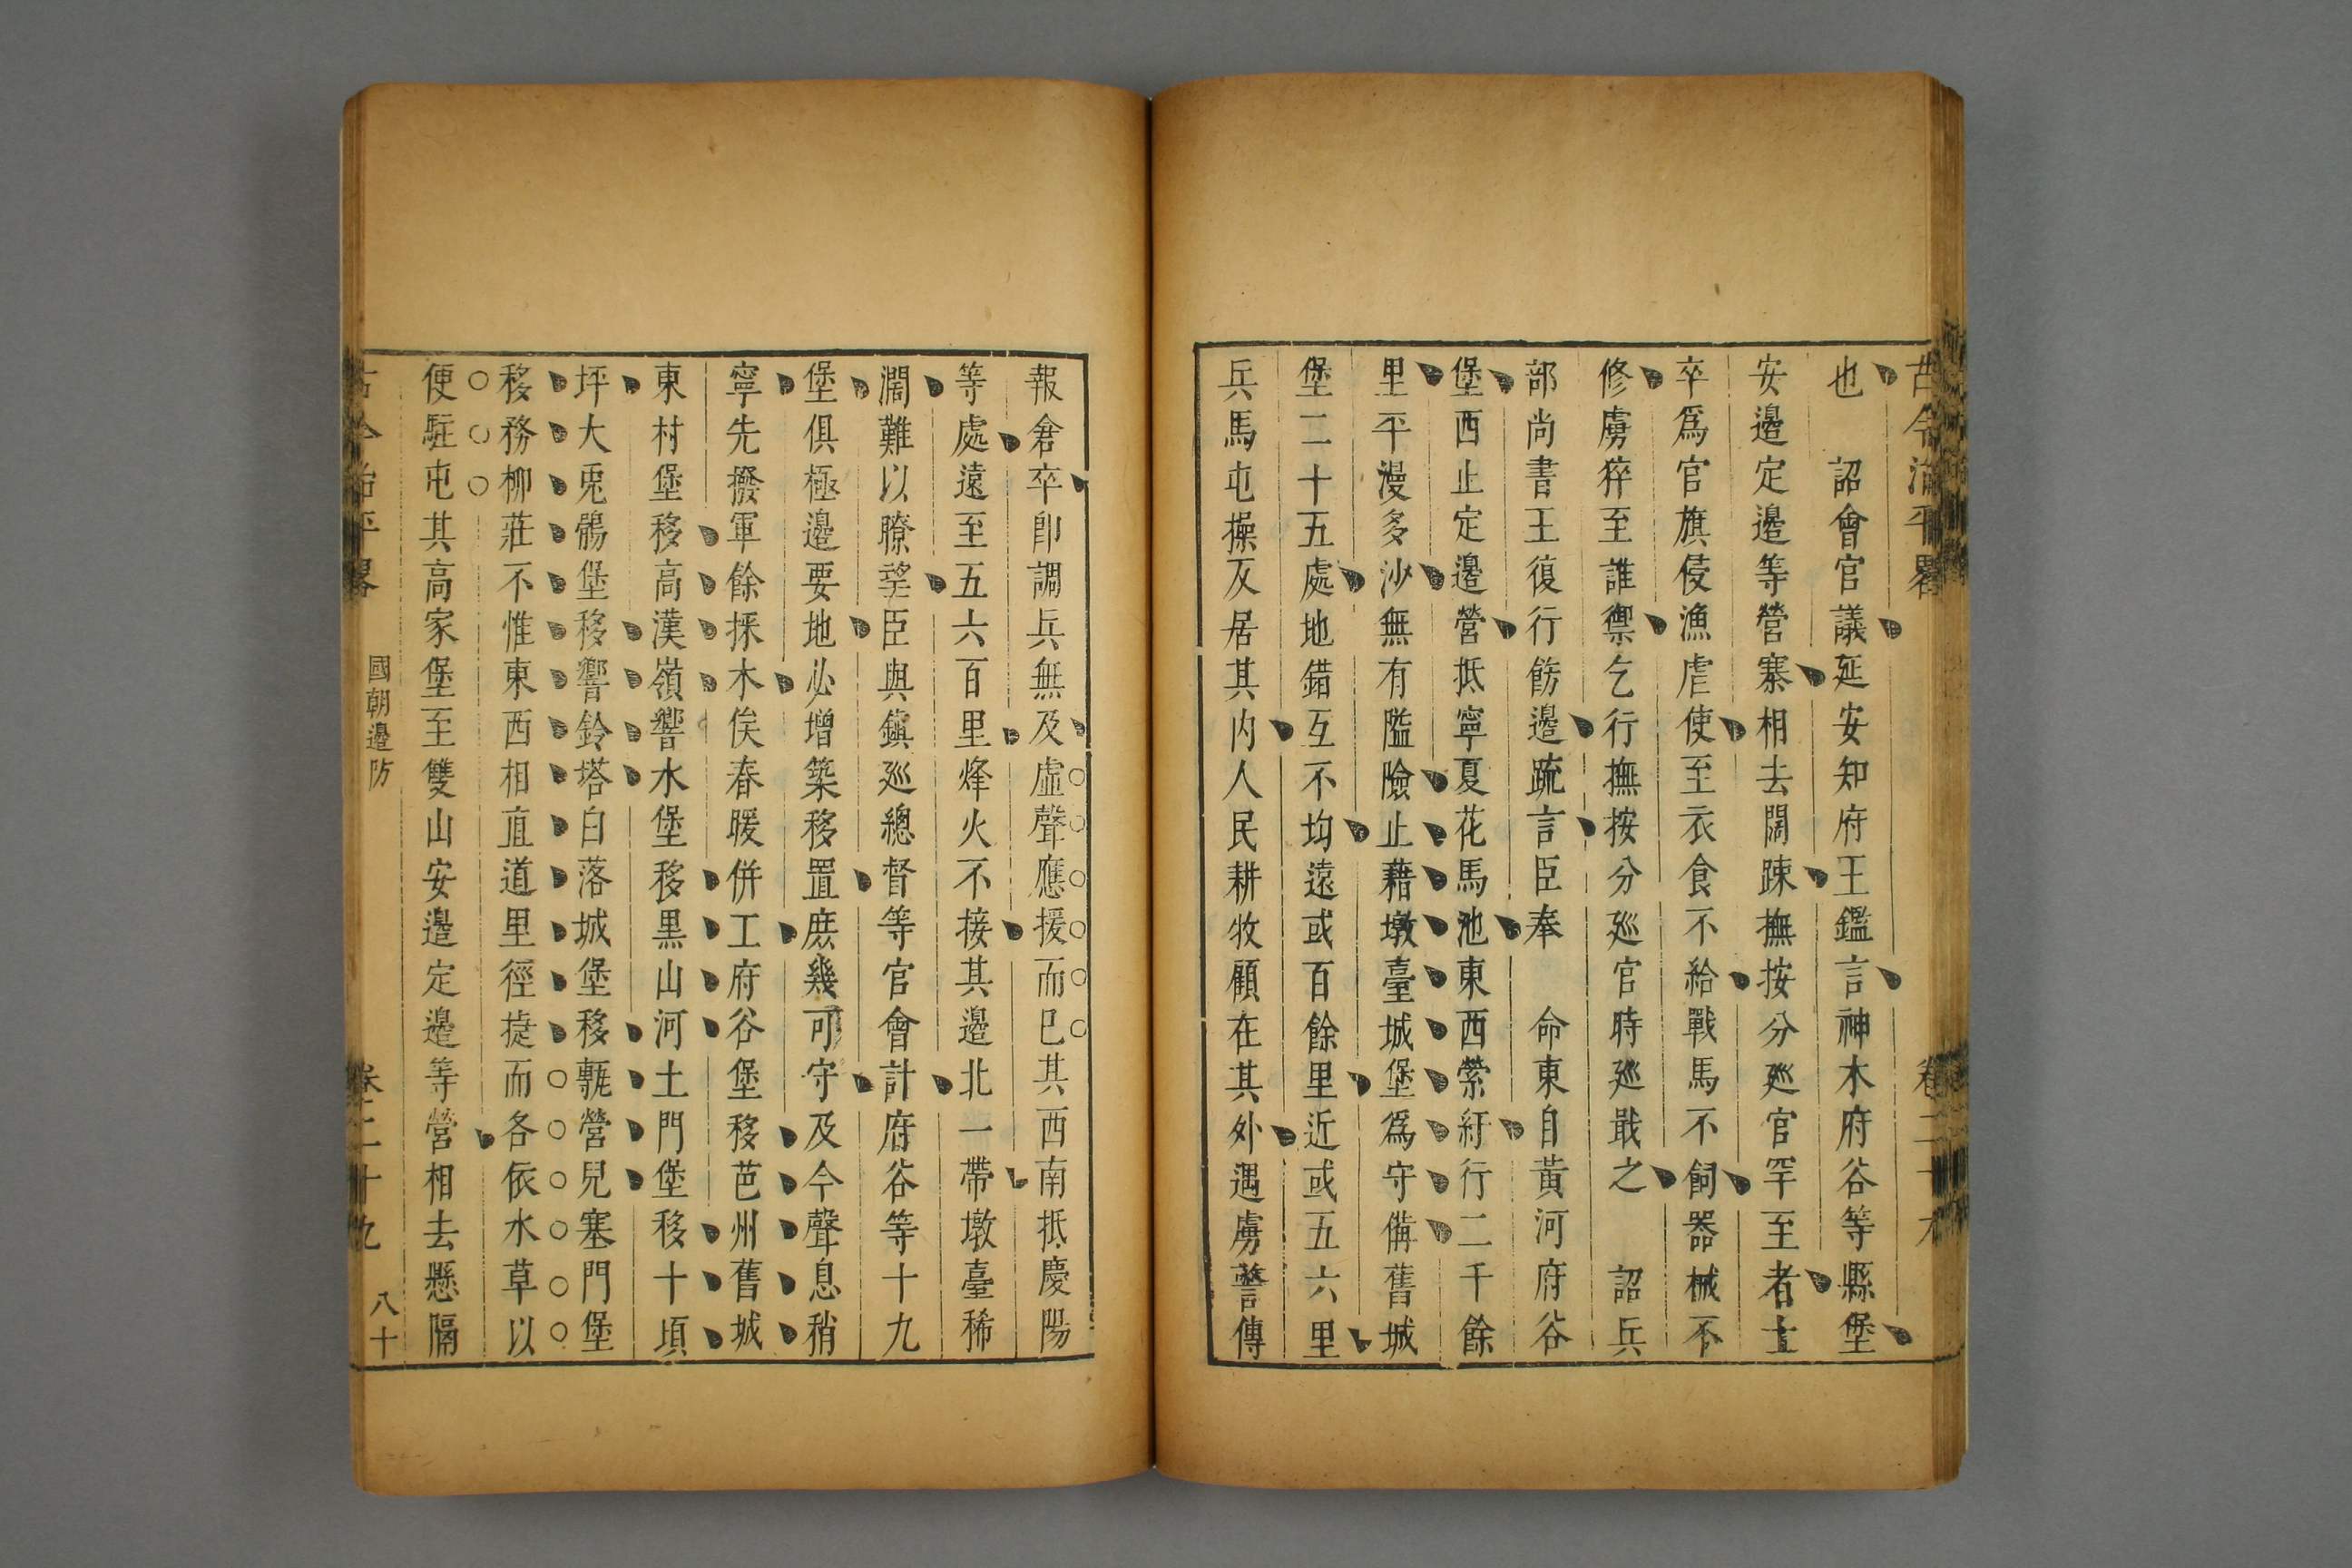 古今治平畧 卷二十九
也 詔會官議延安知府王鑑言神木府谷等縣堡
安邊定邊等營寨相去闊踈撫按分廵官罕至者士
卒爲官旗侵漁虐使至衣食不給戰馬不飼器械不
修虜猝至誰禦乞行撫按分廵官時廵戢之 詔兵
部尚書王復行飭邊疏言臣奉 命東自黃河府谷
堡西止定邊營抵寧夏花馬池東西縈紆行二千餘
里平漫多沙無有隘險止藉墩臺城堡爲守備舊城
堡二十五處地錯互不均遠或百餘里近或五六里
兵馬屯操反居其内人民耕牧顧在其外遇虜警傳
報倉卒卽調兵無及虛聲應援而已其西南抵慶陽
等處遠至五六百里烽火不接其邊北一帶墩臺稀
濶難以瞭望臣與鎮廵總督等官會計府谷等十九
堡俱極邊要地必增築移置庶幾可守及今聲息稍
寧先撥軍餘採木俟春暖併工府谷堡移芭州舊城
東村堡移高漢嶺響水堡移黑山河土門堡移十頃
坪大兎鶻堡移響鈴塔白落城堡移甎營兒塞門堡
移務柳莊不惟東西相直道里徑捷而各依水草以
便駐屯其高家堡至雙山安邊定邊等營相去懸隔
古今治平畧 國朝邊防 卷二十九 八十